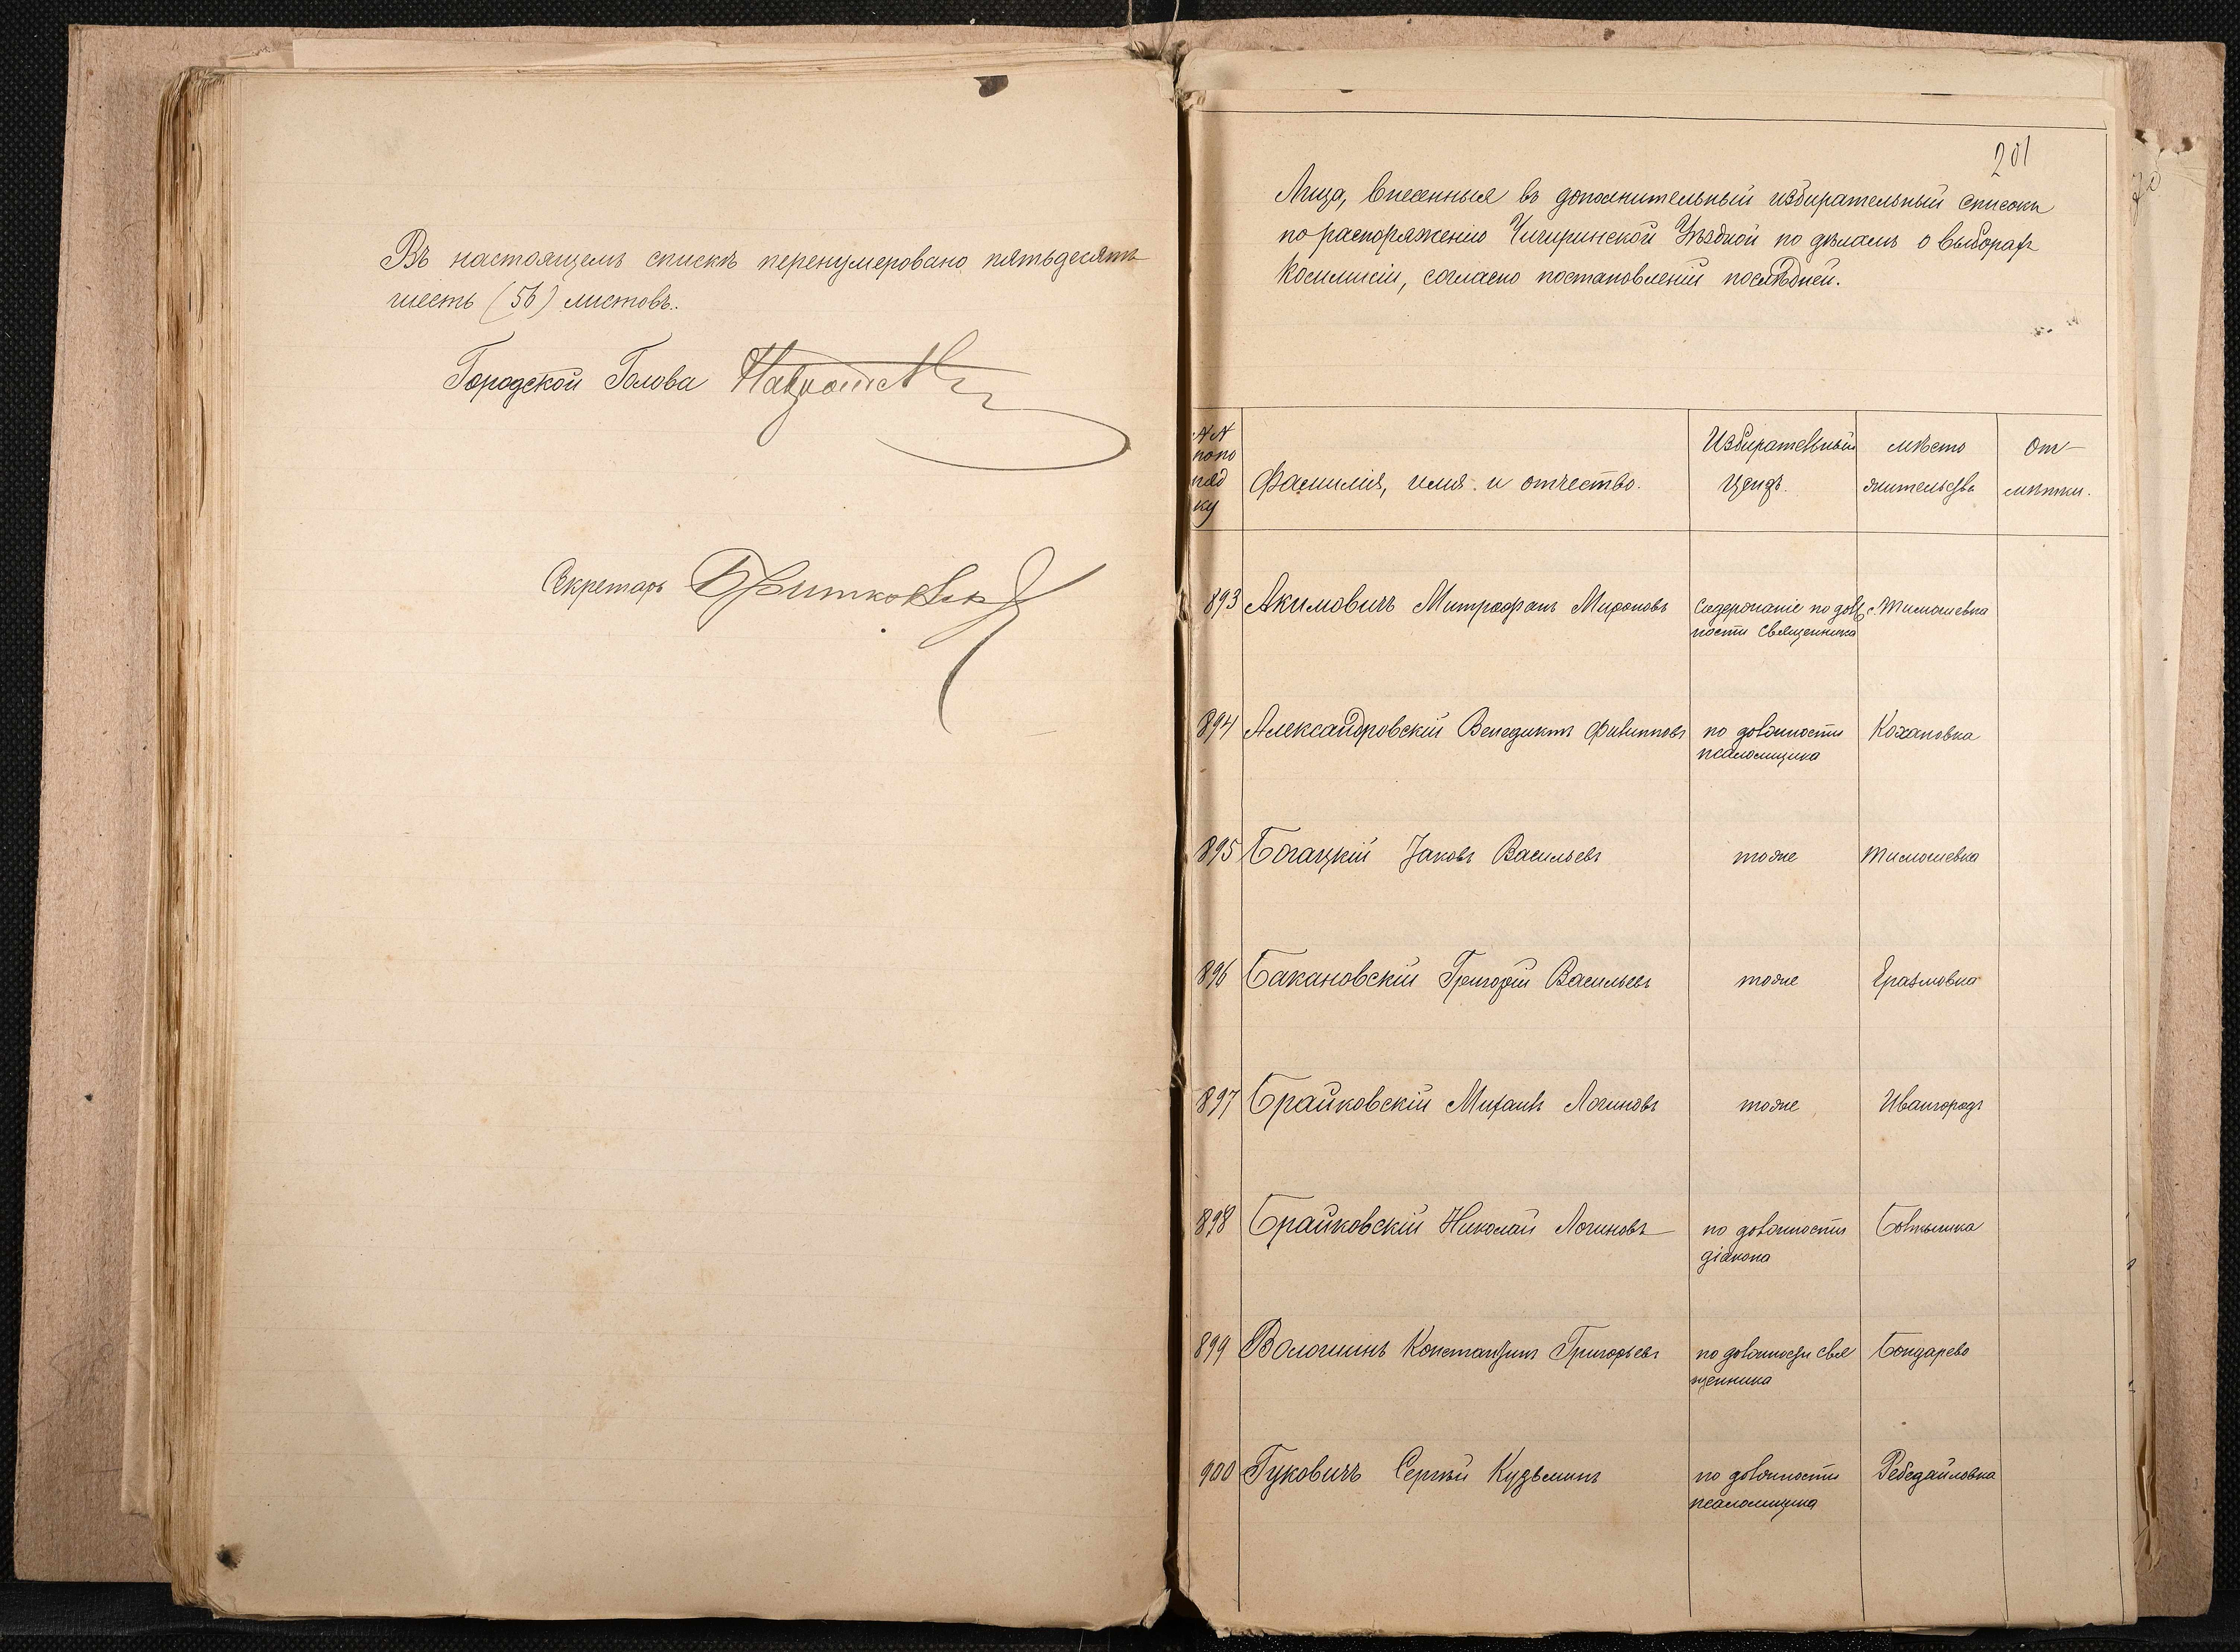 Въ настоящемъ спискѣ перенумеровано пятьдесятъ
шесть (56) листовъ.
Городской Голова
Секретарь
201
Лица, внесенныя въ дополнительный избирательный списокъ
по распоряженію Чигиринской Уѣздной по дѣламъ о выборахъ
Комиссіи, согласно постановленій послѣдней.
NN
по по
ряд
ку
Фамилія, имя и отчество.
Избирательный
цензъ.
мѣсто
жительства
От-
мѣтки.
893 Акимовичъ Митрофанъ Мироновъ Содержаніе по долж с. Тимошевка
ности Священника
894 Александровскій Венедиктъ Филипповъ по должности Кохановка
псаломщика
895 Богацкій Іаковъ Васильевъ тоже Тимошевка
896 Бакановскій Григорій Васильевъ тоже Еразмовка
897 Брайковскій Михаилъ Логиновъ тоже Ивангородъ
898 Брайковскій Николай Логиновъ по должности Болтышка
діакона
899 Волошинъ Константинъ Григорьевъ по должности свя Бондарево
щенника
900 Гуковичъ Сергѣй Кузьминъ по должности Ребедайловка
псаломщика